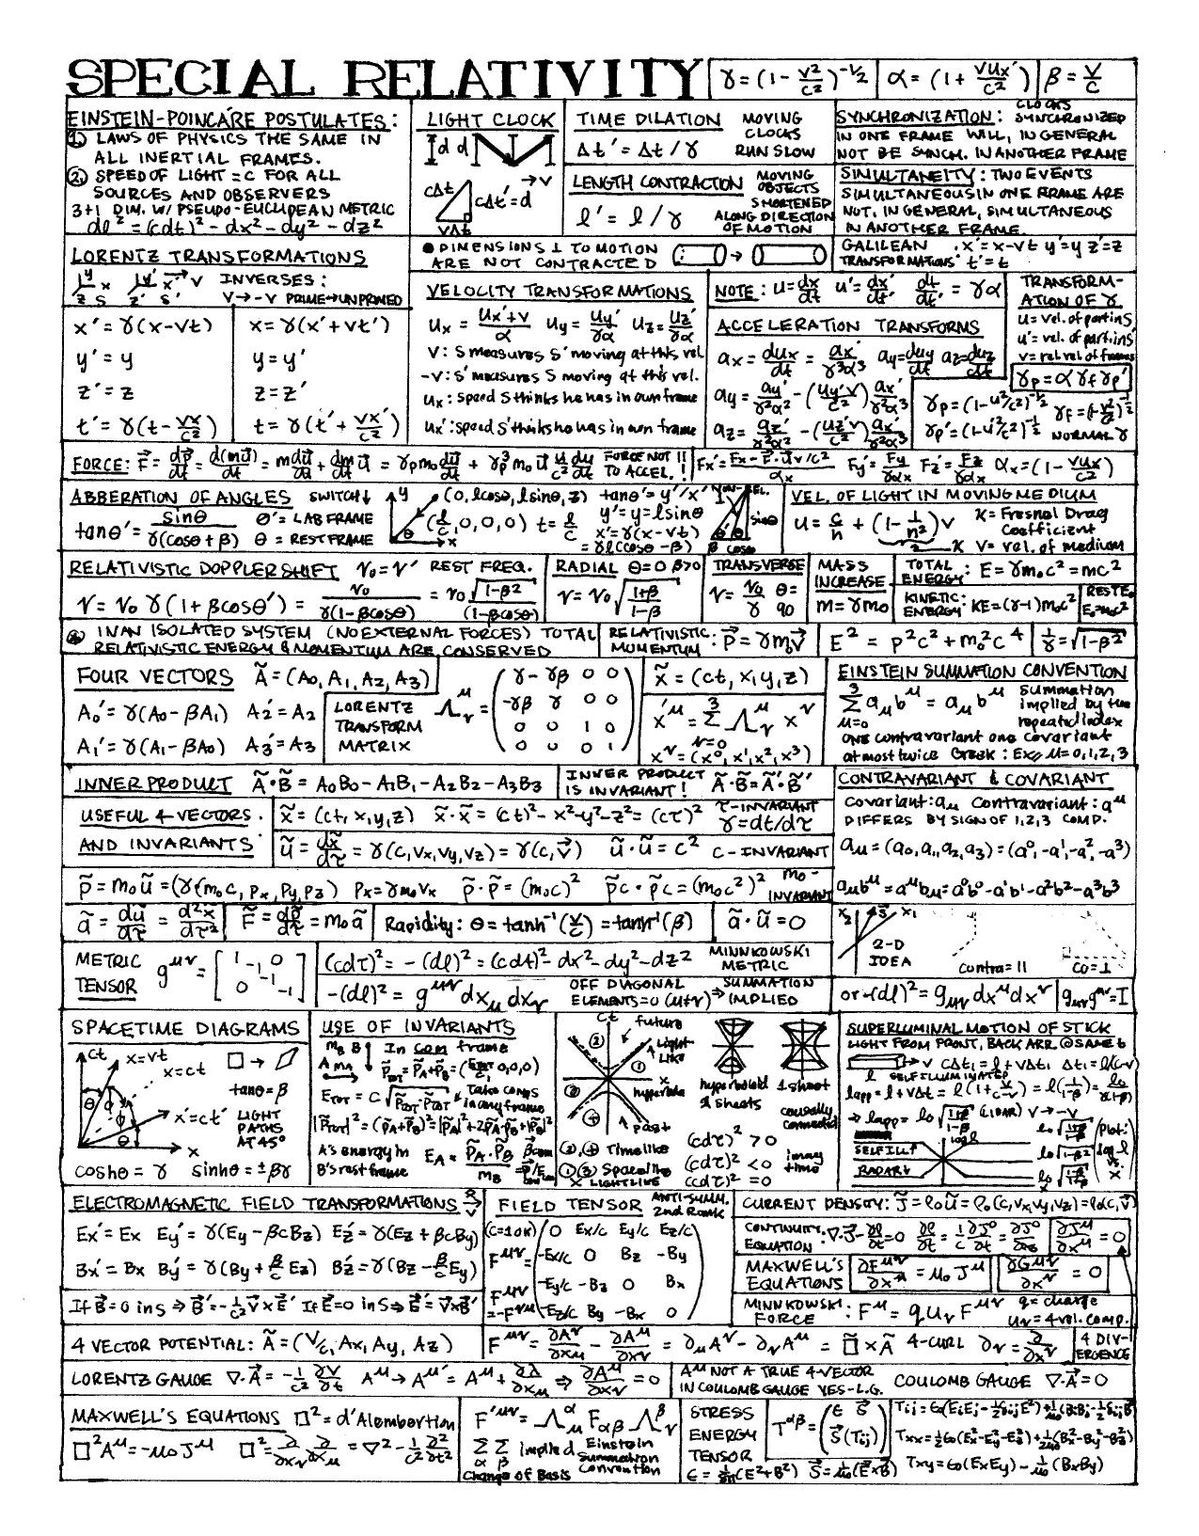 SPECIAL RELATIVITY
γ = (1 - v²/c²)^-1/2
α = (1 + vUx'/c²)
β = v/c
EINSTEIN-POINCARE POSTULATES:
1) LAWS OF PHYSICS THE SAME IN
ALL INERTIAL FRAMES.
2) SPEED OF LIGHT = C FOR ALL
SOURCES AND OBSERVERS
3+1 DIM. W/ PSEUDO-EUCLIDEAN METRIC
dl² = (cdt)² - dx² - dy² - dz²
LIGHT CLOCK
d d
→v
cΔt
cΔt' = d
vΔt
TIME DILATION
MOVING
CLOCKS
RUN SLOW
Δt' = Δt/γ
LENGTH CONTRACTION
MOVING
OBJECTS
SHORTENED
ALONG DIRECTION
OF MOTION
l' = l/γ
SYNCHRONIZATION: CLOCKS SYNCHRONIZED
IN ONE FRAME WILL, IN GENERAL
NOT BE SYNCH. IN ANOTHER FRAME
SIMULTANEITY: TWO EVENTS
SIMULTANEOUS IN ONE FRAME ARE
NOT, IN GENERAL, SIMULTANEOUS
IN ANOTHER FRAME.
LORENTZ TRANSFORMATIONS
INVERSES:
v→-v PRIME→UNPRIMED
x' = γ(x-vt)
y' = y
z' = z
t' = γ(t - vx/c²)
x = γ(x'+vt')
y = y'
z = z'
t = γ(t' + vx'/c²)
• DIMENSIONS ⊥ TO MOTION
ARE NOT CONTRACTED
GALILEAN x' = x-vt y'=y z'=z
TRANSFORMATIONS t' = t
VELOCITY TRANSFORMATIONS
Ux = (Ux'+v)/α Uy = Uy'/γα Uz = Uz'/γα
V: S measures S' moving at this vel
-V: S' measures S moving at this vel.
Ux: speed S thinks he has in own frame
Ux': speed S' thinks he has in own frame
NOTE: u = dx/dt u' = dx'/dt' dt/dt' = γα
ACCELERATION TRANSFORMS
ax = dux/dt = ax'/γ³α³ ay = duy/dt az = duz/dt
ay = ay'/γ²α² - (uy'v/c²) ax'/γ²α³
az = az'/γ²α² - (uz'v/c²) ax'/γ²α³
TRANSFORM-
ATION OF γ
u = vel. of part in S
u' = vel. of part in S'
v = rel vel of frames
γp = αγfγp'
γp = (1-u²/c²)^-1/2
γf = (1-v²/c²)^-1/2
γp' = (1-u'²/c²)^-1/2
NORMAL γ
FORCE: F = dp/dt = d(mu)/dt = m du/dt + dm/dt u = γp m₀ du/dt + γp³ m₀ u u/c² du/dt
FORCE NOT ||
TO ACCEL. !
Fx' = (Fx - F·u v/c²)/αx Fy' = Fy/γαx Fz' = Fz/γαx αx = (1 - vux/c²)
ABBERATION OF ANGLES
SWITCH↓
tanθ' = sinθ/γ(cosθ+β)
θ' = LAB FRAME
θ = REST FRAME
(0, lcosθ, lsinθ, z)
(l/c, 0, 0, 0) t = l/c
tanθ' = y'/x'
y' = y = lsinθ
x' = γ(x-vt)
= γl(cosθ-β)
VEL. OF LIGHT IN MOVING MEDIUM
u = c/n + (1 - 1/n²)v
K = Fresnel Drag
Coefficient
V = vel. of medium
RELATIVISTIC DOPPLER SHIFT ν₀ = ν' REST FREQ.
ν = ν₀ γ(1+βcosθ') = ν₀/γ(1-βcosθ) = ν₀ √(1-β²)/(1-βcosθ)
RADIAL θ=0 β>0
ν = ν₀ √((1+β)/(1-β))
TRANSVERSE
ν = ν₀/γ θ = 90
MASS
INCREASE
m = γm₀
TOTAL ENERGY: E = γm₀c² = mc²
KINETIC ENERGY: KE = (γ-1)m₀c²
REST E.
E₀ = m₀c²
IN AN ISOLATED SYSTEM (NO EXTERNAL FORCES) TOTAL
RELATIVISTIC ENERGY & MOMENTUM ARE CONSERVED
RELATIVISTIC MOMENTUM: p = γm₀v
E² = p²c² + m₀²c⁴
1/γ = √(1-β²)
FOUR VECTORS Ã = (A₀, A₁, A₂, A₃)
A₀' = γ(A₀-βA₁) A₂' = A₂
A₁' = γ(A₁-βA₀) A₃' = A₃
LORENTZ
TRANSFORM
MATRIX
γ -γβ 0 0
-γβ γ 0 0
0 0 1 0
0 0 0 1
x̃ = (ct, x, y, z)
x'^μ = Σ Λ^μ_ν x^ν
x^ν = (x⁰, x¹, x², x³)
EINSTEIN SUMMATION CONVENTION
Σ a_μ b^μ = a_μ b^μ
summation
implied by two
repeated index
one contravariant one covariant
at most twice Greek: Ex μ=0,1,2,3
INNER PRODUCT Ã·B̃ = A₀B₀ - A₁B₁ - A₂B₂ - A₃B₃
INNER PRODUCT
IS INVARIANT! Ã·B̃ = Ã'·B̃'
CONTRAVARIANT & COVARIANT
covariant: a_μ contravariant: a^μ
DIFFERS BY SIGN OF 1,2,3 COMP.
a_μ = (a₀, a₁, a₂, a₃) = (a⁰, -a¹, -a², -a³)
a_μb^μ = a^μb_μ = a⁰b⁰ - a¹b¹ - a²b² - a³b³
USEFUL 4-VECTORS
AND INVARIANTS
x̃ = (ct, x, y, z) x̃·x̃ = (ct)² - x² - y² - z² = (cτ)²
τ-INVARIANT
γ = dt/dτ
ũ = dx̃/dτ = γ(c, vx, vy, vz) = γ(c, v) ũ·ũ = c² C-INVARIANT
p̃ = m₀ũ = (γm₀c, px, py, pz) px = γm₀vx p̃·p̃ = (m₀c)² p̃c·p̃c = (m₀c²)² m₀-INVARIANT
ã = dũ/dτ = d²x̃/dτ²
F̃ = dp̃/dτ = m₀ã
Rapidity: θ = tanh⁻¹(v/c) = tanh⁻¹(β)
ã·ũ = 0
2-D
IDEA
contra = ||
co = ⊥
METRIC
TENSOR
g^μν =
(cdτ)² = -(dl)² = (cdt)² - dx² - dy² - dz²
MINNKOWSKI
METRIC
-(dl)² = g^μν dx_μ dx_ν
OFF DIAGONAL
ELEMENTS = 0 (μ≠ν) ⇒ SUMMATION IMPLIED
or -(dl)² = g_μν dx^μ dx^ν
g_μν g^μν = I
SPACETIME DIAGRAMS
ct
x = vt
x = ct
tanθ = β
x' = ct'
LIGHT
PATHS
AT 45°
coshθ = γ sinhθ = ±βγ
USE OF INVARIANTS
In com frame
Take comps
in any frame
A's energy in
B's rest frame
ct
future
Light-
like
x
hyperbola
past
Timelike
Spacelike
LIGHTLIKE
hyperboloid
2 sheets
1 sheet
causally
connected
(cdτ)² > 0
(cdτ)² < 0
imag
time
(cdτ)² = 0
SUPERLUMINAL MOTION OF STICK
LIGHT FROM FRONT, BACK ARR. @ SAME t
SELF ILLUMINATED
v→-v
Plot:
log l
vs
SELF ILL↑
RADAR↓
ELECTROMAGNETIC FIELD TRANSFORMATIONS
Ex' = Ex Ey' = γ(Ey-βcBz) Ez' = γ(Ez+βcBy)
Bx' = Bx By' = γ(By + β/c Ez) Bz' = γ(Bz - β/c Ey)
If B=0 in S ⇒ B' = -1/c² v×E' If E=0 in S ⇒ E' = v×B'
FIELD TENSOR
ANTI-SYMM.
2nd Rank
0 Ex/c Ey/c Ez/c
-Ex/c 0 Bz -By
-Ey/c -Bz 0 Bx
-Ez/c By -Bx 0
CURRENT DENSITY: J̃ = ρ₀ũ = ρ₀(c, vx, vy, vz) = ρ(c, v)
CONTINUITY
EQUATION:
∂J^μ/∂x^μ = 0
MAXWELL'S
EQUATIONS
∂F^μν/∂x^ν = μ₀J^μ
∂G^μν/∂x^ν = 0
MINNKOWSKI
FORCE
: F^μ = qu_ν F^μν
q = charge
u_ν = 4 vel. comp.
4 VECTOR POTENTIAL: Ã = (V/c, Ax, Ay, Az)
F^μν = ∂A^ν/∂x_μ - ∂A^μ/∂x_ν = ∂_μA^ν - ∂_νA^μ = □̃ × Ã 4-CURL ∂_ν = ∂/∂x^ν
4 DIV-
ERGENCE
LORENTZ GAUGE ∇·A = -1/c² ∂V/∂t A^μ → A^μ' = A^μ + ∂λ/∂x_μ ⇒ ∂A^μ/∂x^ν = 0
A^μ NOT A TRUE 4-VECTOR
IN COULOMB GAUGE YES-L.G.
COULOMB GAUGE ∇·A = 0
MAXWELL'S EQUATIONS □² = d'Alembertian
□²A^μ = -μ₀J^μ □² = ∂/∂x_ν ∂/∂x^μ = ∇² - 1/c² ∂²/∂t²
F'^μν = Λ^α_μ F_αβ Λ^β_ν
Σ Σ implied Einstein
α β Summation
Convention
Change of Basis
STRESS
ENERGY
TENSOR